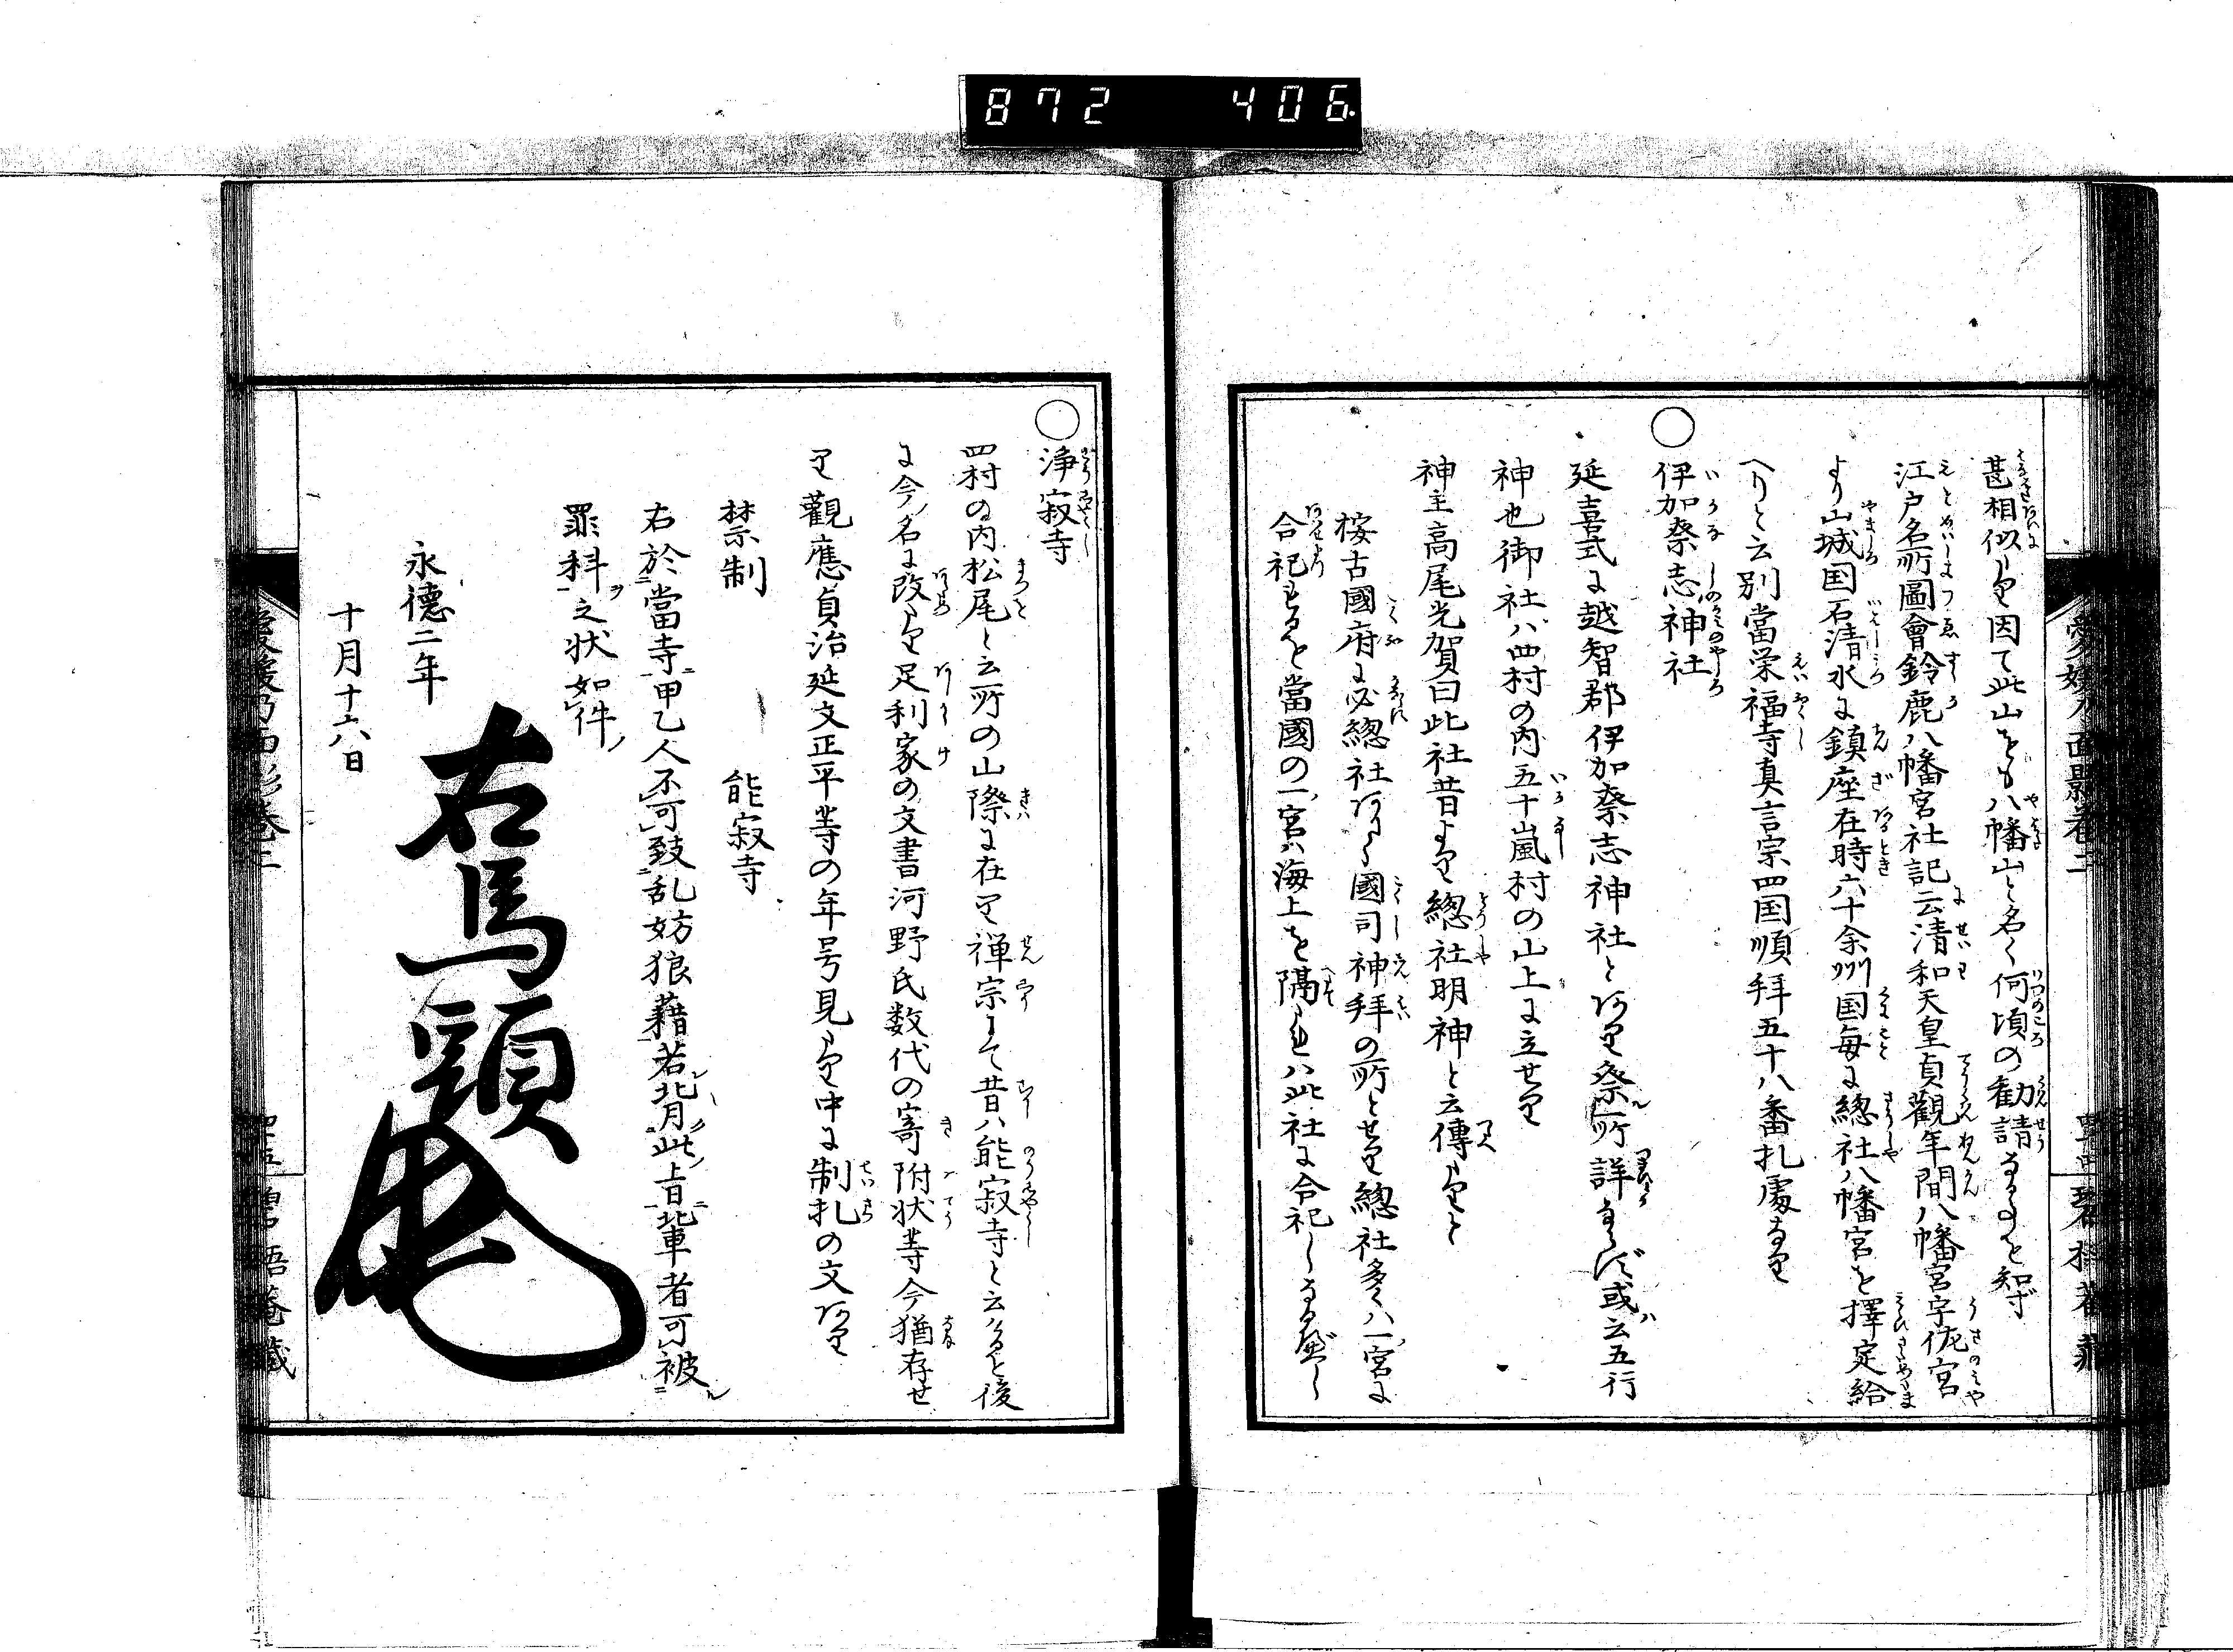 872 406
甚相似たり因て此山をも八幡山と名く何頃の勧請なることを知ず
江戸名所圖會鈴鹿八幡宮社記云清和天皇貞觀年間八幡宮宇佐宮
より山城国石清水に鎮座在時六十余州国毎に總社八幡宮を擇定給
へりと云別當栄福寺真言宗四国順拜五十八番札處なり
○伊加奈志神社
延喜式に越智郡伊加奈志神社とあり祭ル所詳ならず或ハ云五行
神也御社ハ四村の内五十嵐村の山上に立せり
神主高尾光賀曰此社昔より總社明神と云傳たりと
按古國府に必總社ありて國司神拜の所とせり總社多くハ一宮に
合祀せるを當國の一宮ハ海上を隔たれハ此社に合祀しなるべし
愛媛乃面影巻二
○浄寂寺
四村の内松尾と云所の山際に在り禅宗にて昔ハ能寂寺と云けるを後
に今ノ名に改たり足利家の文書河野氏数代の寄附状等今猶存せ
り觀應貞治延文正平等の年号見えたり中に制札の文あり
禁制 能寂寺
右於當寺甲乙人不可致乱妨狼藉若背此旨輩者可被
罪科之状如件
永德二年
十月十六日
右馬頭
愛媛乃面影巻二